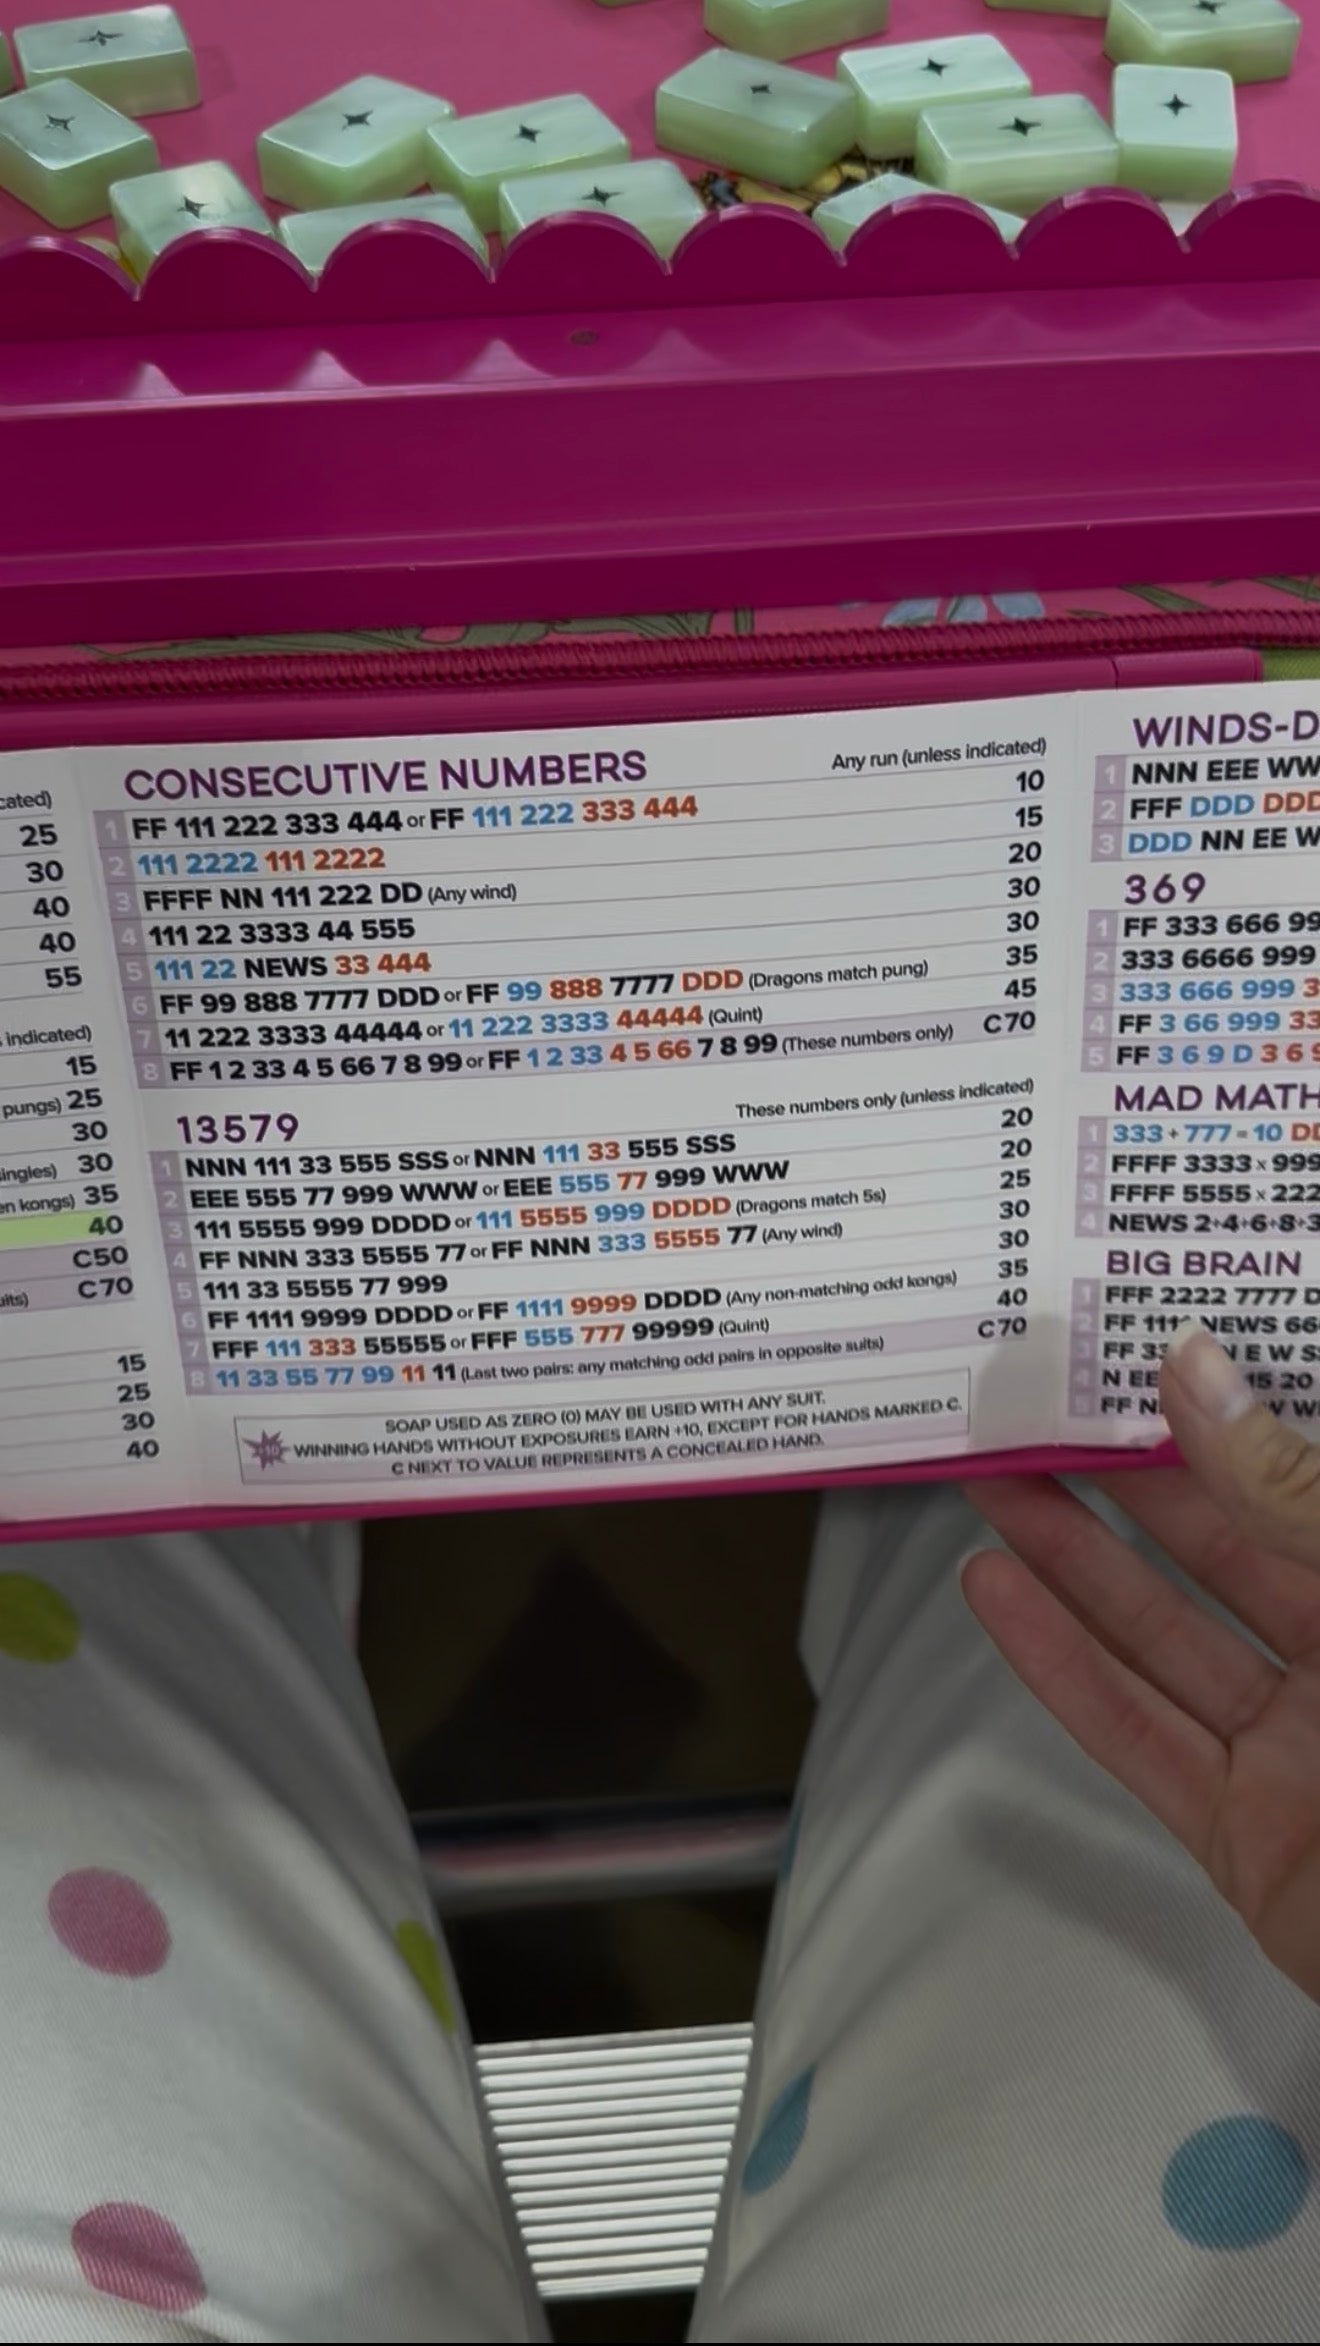 cated)
25
30
40
40
55
indicated)
15
pungs) 25
30
ingles) 30
en kongs) 35
40
C50
uits) C70
15
25
30
40
CONSECUTIVE NUMBERS Any run (unless indicated)
1 FF 111 222 333 444 or FF 111 222 333 444 10
2 111 2222 111 2222 15
3 FFFF NN 111 222 DD (Any wind) 20
4 111 22 3333 44 555 30
5 111 22 NEWS 33 444 30
6 FF 99 888 7777 DDD or FF 99 888 7777 DDD (Dragons match pung) 35
7 11 222 3333 44444 or 11 222 3333 44444 (Quint) 45
8 FF 1 2 33 4 5 66 7 8 99 or FF 1 2 33 4 5 66 7 8 99 (These numbers only) C70
13579 These numbers only (unless indicated)
1 NNN 111 33 555 SSS or NNN 111 33 555 SSS 20
2 EEE 555 77 999 WWW or EEE 555 77 999 WWW 20
3 111 5555 999 DDDD or 111 5555 999 DDDD (Dragons match 5s) 25
4 FF NNN 333 5555 77 or FF NNN 333 5555 77 (Any wind) 30
5 111 33 5555 77 999 30
6 FF 1111 9999 DDDD or FF 1111 9999 DDDD (Any non-matching odd kongs) 35
7 FFF 111 333 55555 or FFF 555 777 99999 (Quint) 40
8 11 33 55 77 99 11 11 (Last two pairs: any matching odd pairs in opposite suits) C70
SOAP USED AS ZERO (0) MAY BE USED WITH ANY SUIT.
+10 WINNING HANDS WITHOUT EXPOSURES EARN +10, EXCEPT FOR HANDS MARKED C.
C NEXT TO VALUE REPRESENTS A CONCEALED HAND.
WINDS-D
1 NNN EEE WW
2 FFF DDD DDD
3 DDD NN EE W
369
1 FF 333 666 99
2 333 6666 999
3 333 666 999 3
4 FF 3 66 999 33
5 FF 3 6 9 D 3 6 9
MAD MATH
1 333 + 777 = 10 DD
2 FFFF 3333 x 999
3 FFFF 5555 x 222
4 NEWS 2+4+6+8+3
BIG BRAIN
1 FFF 2222 7777 D
2 FF 111 NEWS 66
3 FF 33 N E W S
4 N EE 15 20
5 FF N W W